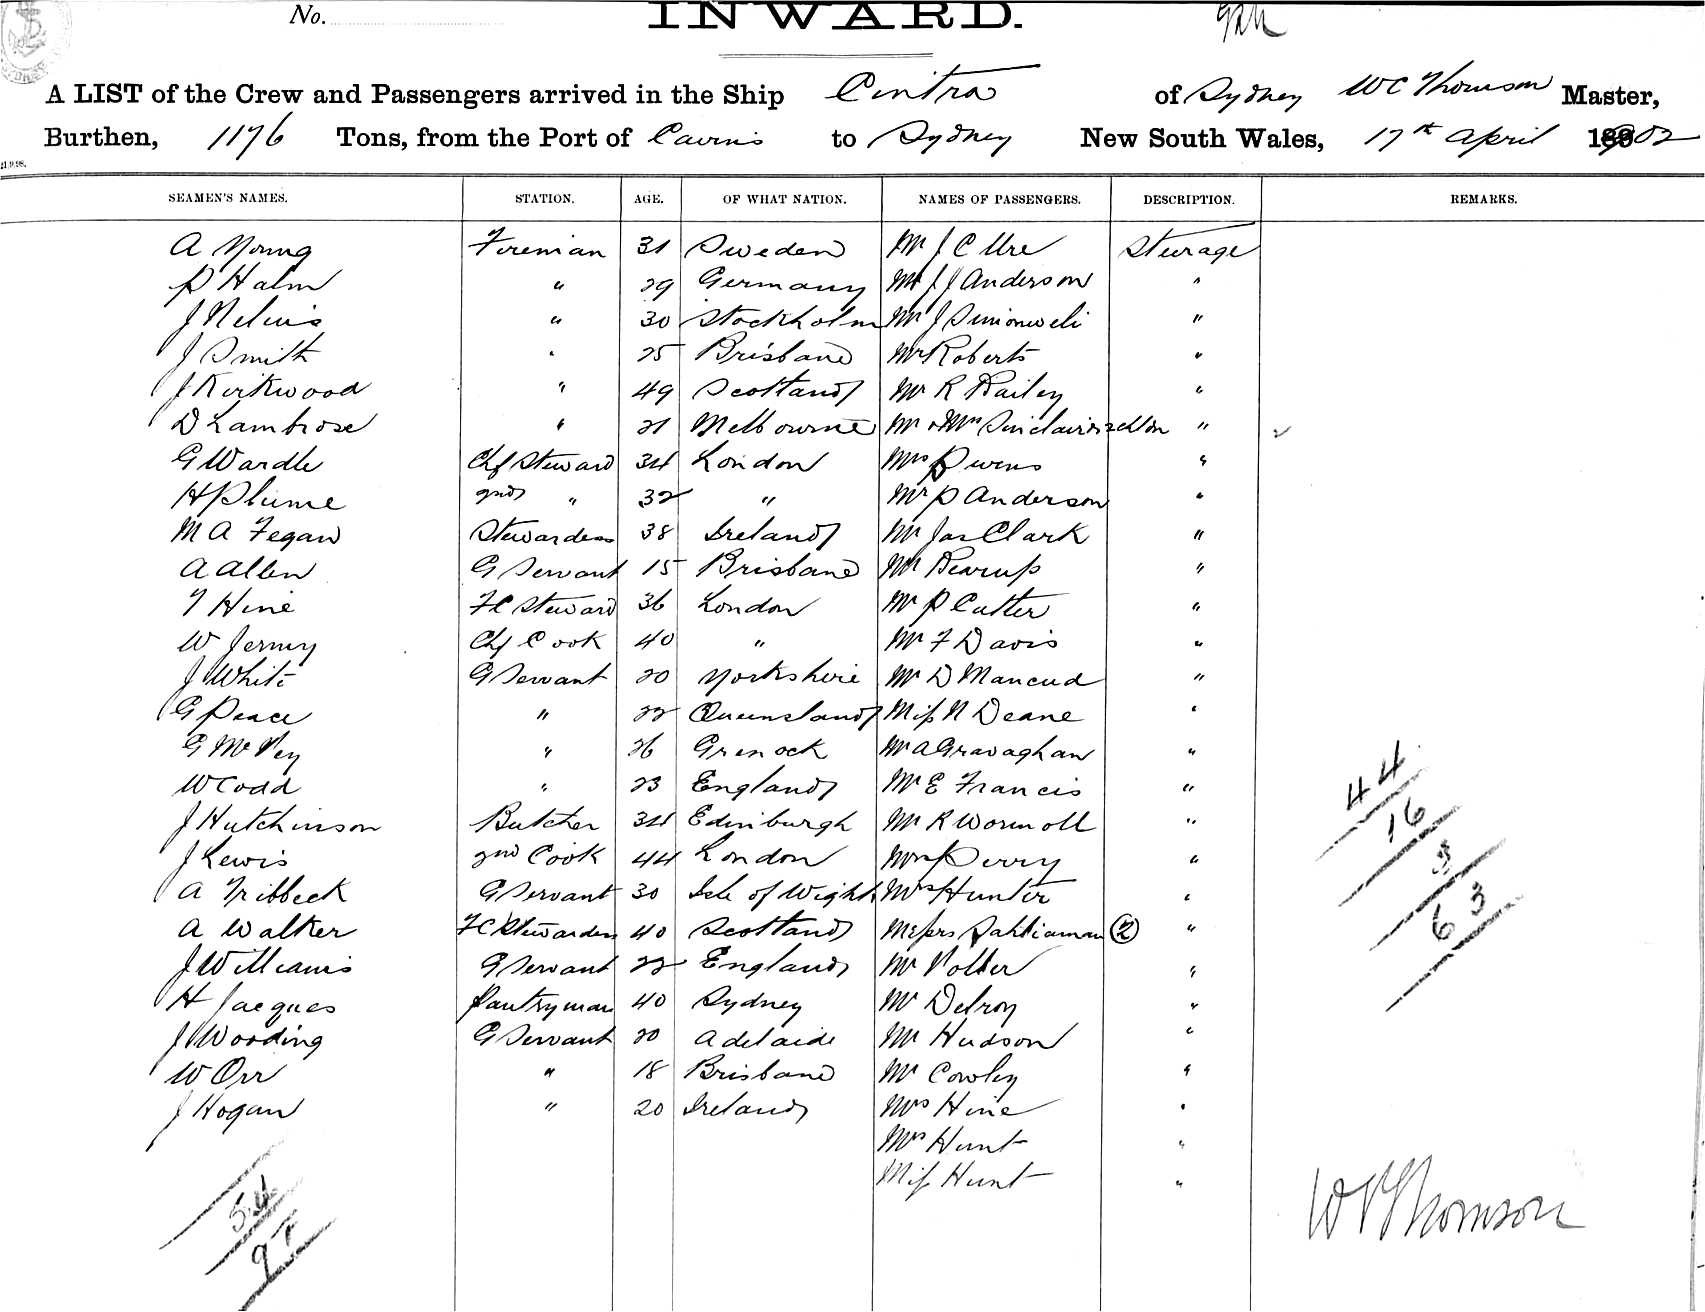 No.
INWARD.
A LIST of the Crew and Passengers arrived in the Ship Cintra of Sydney WC Thomson Master,
Burthen, 1176 Tons, from the Port of Cairns to Sydney New South Wales, 17th April 1902
SEAMEN'S NAMES. STATION. AGE. OF WHAT NATION. NAMES OF PASSENGERS. DESCRIPTION. REMARKS.
A Young Fireman 31 Sweden Mr J C Ure Steerage
P Halm " 29 Germany Mr J J Anderson "
J Nelius " 30 Stockholm Mr J "
J Smith " 25 Brisbane Mr Roberts "
J Kirkwood " 49 Scotland Mr R Bailey "
D Lambrose " 21 Melbourne Mr & Mrs Sinclair "
G Wardle Chf Steward 34 London Mrs Owens "
H Plume 2nd " 32 " Mr P Anderson "
M A Fegan Stewardess 38 Ireland Mr Jas Clark "
A Allen G Servant 15 Brisbane Mr Bearup "
T Hine FC Steward 36 London Mr P Cutter "
W Jermy Chf Cook 40 " Mr F Davis "
J White G Servant 20 Yorkshire Mr D "
G Peace " 22 Queensland Miss N Deane "
G McVey " 26 Grenock Mr A Gravaghan "
W Codd " 23 England Mr E Francis "
J Hutchinson Butcher 34 Edinburgh Mr R Wormoll "
J Lewis 2nd Cook 44 London Mrs Perry "
A Tribbeck G Servant 30 Isle of Wight Mrs Hunter "
A Walker FC Stewardess 40 Scotland Messrs 2 "
J Williams G Servant 22 England Mr Potter "
H Jacques Pantryman 40 Sydney Mr Delroy "
J Wooding G Servant 20 Adelaide Mr Hudson "
W Orr " 18 Brisbane Mr Cowley "
J Hogan " 20 Ireland Mrs Hine "
Mrs Hunt "
Miss Hunt "
44
16
3
63
54
WC Thomson